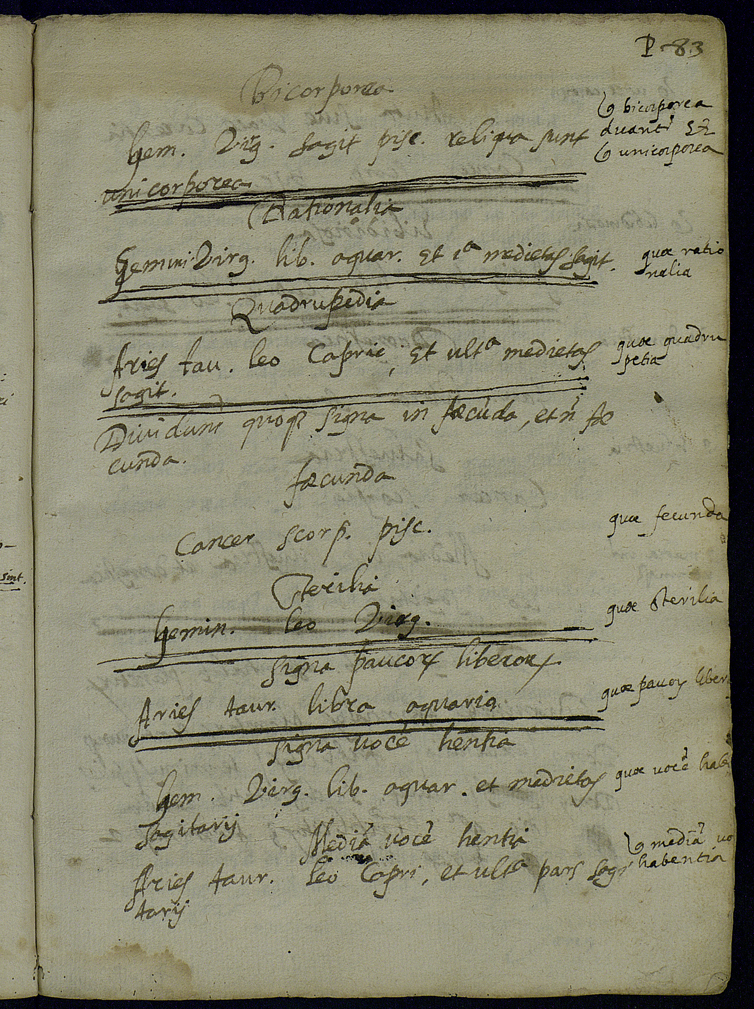 P-83
Bicorporea
Gem. Virg. Sagit pisc. reliqua sunt
unicorporea
Rationalia
Gemini. Virg. lib. aquar. Et 1ᵃ medietas sagit.
Quadrupedia
Aries tau. leo Capric, Et ultᵃ medietas
sagit.
Dividunt quoq signa in fæcūda, et in fæ
cunda.
fæcunda
Cancer scorp. pisc.
Sterilia
Gemin. leo Virg.
signa paucorꝝ liberorꝝ
Aries taur. libra aquariq
signa uocē hentia
Gem. Virg. lib. aquar. et medietas
Sagitarij
Mediā uocē hentia
Aries taur. leo Capri, et ultᵃ pars sagi
tarij
bicorporea
unicorporea
quæ ratio
nalia
quæ quadru
petia
quæ fecunda
quæ sterilia
quæ paucoꝝ liber
quæ uocē hab
mediā uo
habentia